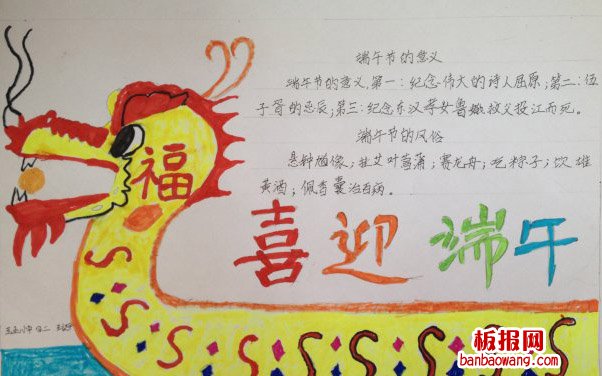 端午节的意义
端午节的意义,第一:纪念伟大的诗人屈原;第二:伍
子胥的忌辰;第三:纪念东汉孝女曹娥救父投江而死。
端午节的风俗
悬钟馗像;挂艾叶菖蒲;赛龙舟;吃粽子;饮雄
黄酒;佩香囊治百病。
福
喜迎端午
板报网
banbaowang.com